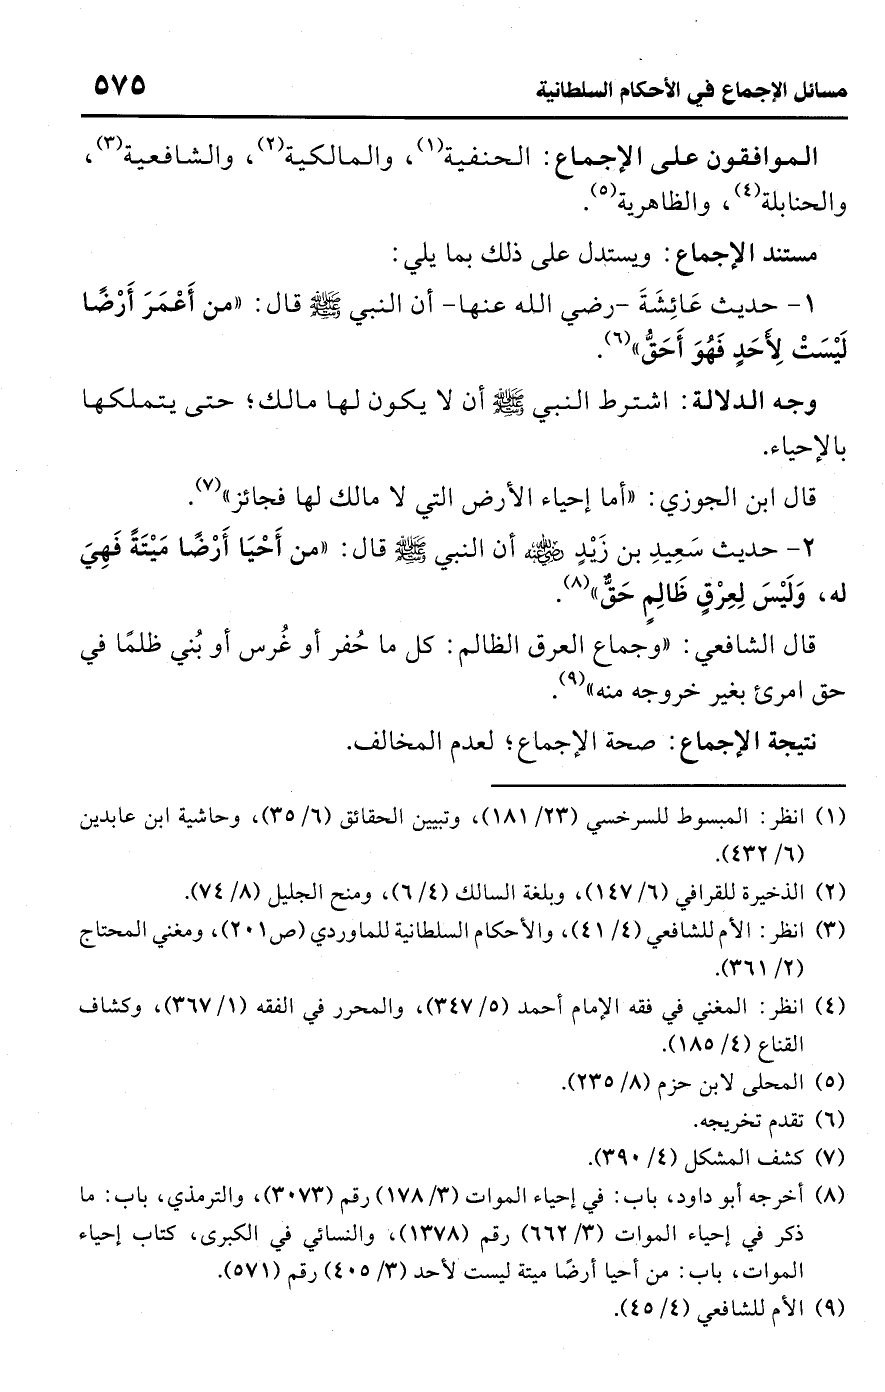 مسائل الإجماع في الأحكام السلطانية ٥٧٥
الموافقون على الإجماع: الحنفية(١)، والمالكية(٢)، والشافعية(٣)،
والحنابلة(٤)، والظاهرية(٥).
مستند الإجماع: ويستدل على ذلك بما يلي:
١- حديث عَائِشَةَ -رضي الله عنها- أن النبي ﷺ قال: «من أَعْمَرَ أَرْضًا
لَيْسَتْ لِأَحَدٍ فَهُوَ أَحَقُّ»(٦).
وجه الدلالة: اشترط النبي ﷺ أن لا يكون لها مالك؛ حتى يتملكها
بالإحياء.
قال ابن الجوزي: «أما إحياء الأرض التي لا مالك لها فجائز»(٧).
٢- حديث سَعِيدِ بن زَيْدٍ رضي الله عنه أن النبي ﷺ قال: «من أَحْيَا أَرْضًا مَيْتَةً فَهِيَ
له، وَلَيْسَ لِعِرْقٍ ظَالِمٍ حَقٌّ»(٨).
قال الشافعي: «وجماع العرق الظالم: كل ما حُفر أو غُرس أو بُني ظلمًا في
حق امرئ بغير خروجه منه»(٩).
نتيجة الإجماع: صحة الإجماع؛ لعدم المخالف.
(١) انظر: المبسوط للسرخسي (٢٣/ ١٨١)، وتبيين الحقائق (٦/ ٣٥)، وحاشية ابن عابدين
(٦/ ٤٣٢).
(٢) الذخيرة للقرافي (٦/ ١٤٧)، وبلغة السالك (٤/ ٦)، ومنح الجليل (٨/ ٧٤).
(٣) انظر: الأم للشافعي (٤/ ٤١)، والأحكام السلطانية للماوردي (ص٢٠١)، ومغني المحتاج
(٢/ ٣٦١).
(٤) انظر: المغني في فقه الإمام أحمد (٥/ ٣٤٧)، والمحرر في الفقه (١/ ٣٦٧)، وكشاف
القناع (٤/ ١٨٥).
(٥) المحلى لابن حزم (٨/ ٢٣٥).
(٦) تقدم تخريجه.
(٧) كشف المشكل (٤/ ٣٩٠).
(٨) أخرجه أبو داود، باب: في إحياء الموات (٣/ ١٧٨) رقم (٣٠٧٣)، والترمذي، باب: ما
ذكر في إحياء الموات (٣/ ٦٦٢) رقم (١٣٧٨)، والنسائي في الكبرى، كتاب إحياء
الموات، باب: من أحيا أرضًا ميتة ليست لأحد (٣/ ٤٠٥) رقم (٥٧١).
(٩) الأم للشافعي (٤/ ٤٥).